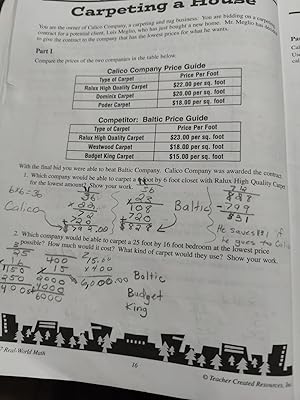 Carpeting a House
You are the owner of Calico Company, a carpeting and rug business. You are bidding on a carpeting
contract for a potential client, Luis Meglio, who has just bought a new home. Mr. Meglio has
to give the contract to the company that has the lowest prices for what he wants.
Part I
Compare the prices of the two companies in the table below.
Calico Company Price Guide
Type of Carpet Price Per Foot
Ralux High Quality Carpet $22.00 per sq. foot
Dominix Carpet $20.00 per sq. foot
Poder Carpet $18.00 per sq. foot
Competitor: Baltic Price Guide
Type of Carpet Price Per Foot
Ralux High Quality Carpet $23.00 per sq. foot
Westwood Carpet $18.00 per sq. foot
Budget King Carpet $15.00 per sq. foot
With the final bid you were able to beat Baltic Company. Calico Company was awarded the contract.
1. Which company would be able to carpet a 6 foot by 6 foot closet with Ralux High Quality Carpet
for the lowest amount? Show your work.
6x6=36
Calico
36
72
720
36
x 23
108
+ 720
$828
Baltic
828
He saves
if
he goes to
2. Which company would be able to carpet a 25 foot by 16 foot bedroom at the lowest price
possible? How much would it cost? What kind of carpet would they use? Show your work.
25
x 16
150
250
400
400
x 15
4000
6000
15.00
x400
6000.00
Baltic
Budget
King
Real-World Math
16
© Teacher Created Resources, Inc